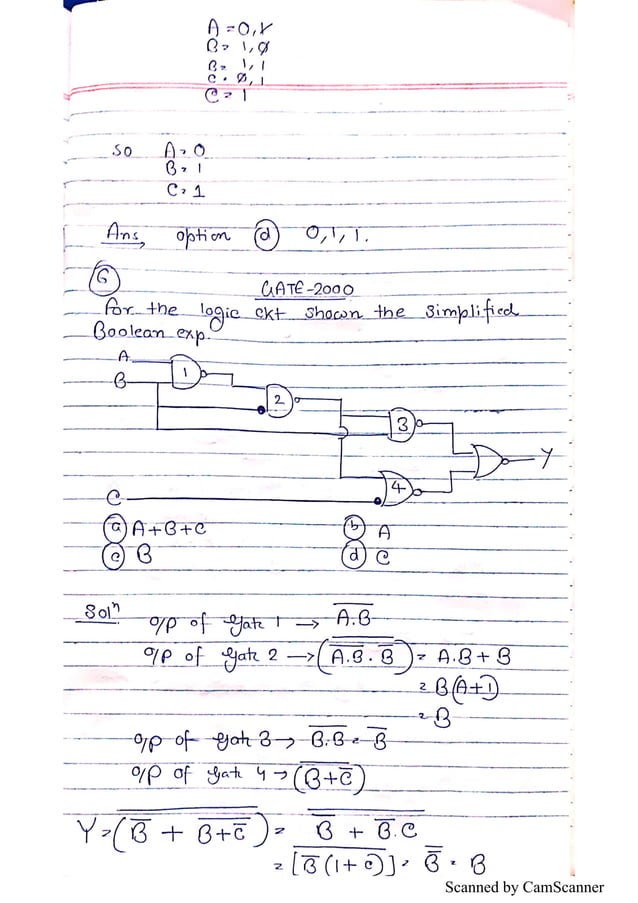 A = 0, 1
B = 1, 0
B = 1, 1
C = 0, 1
C = 1
so A = 0
B = 1
C = 1
Ans, option (d) 0, 1, 1.
(6)
GATE-2000
For the logic ckt shown the simplified
Boolean exp.
A
B
1
2
3
4
Y
C
(a) A+B+C (b) A
(c) B (d) C
Solⁿ o/p of gate 1 → A̅.̅B̅
o/p of gate 2 → (A̅.̅B̅ . B̅)̅ = A.B + B
= B(A+1)
= B
o/p of gate 3 → B̅.̅B̅ = B̅
o/p of gate 4 → (B̅+̅C̅)̅
Y = (B̅ + B̅+̅C̅)̅ = B̅ + B̅.C
= [B̅(1+C)] = B̿ = B
Scanned by CamScanner